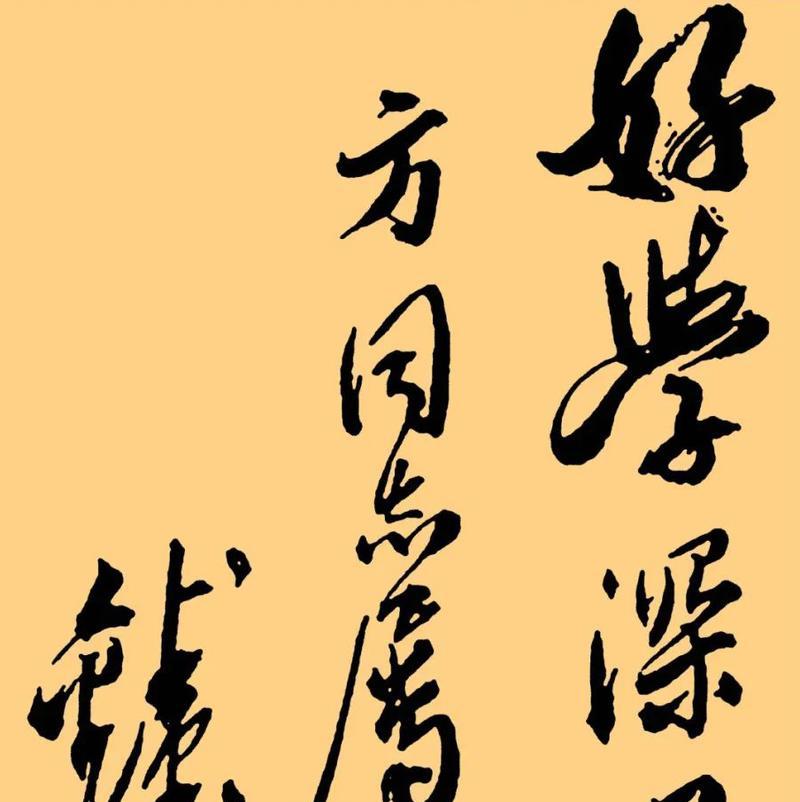 好学深
方同志属